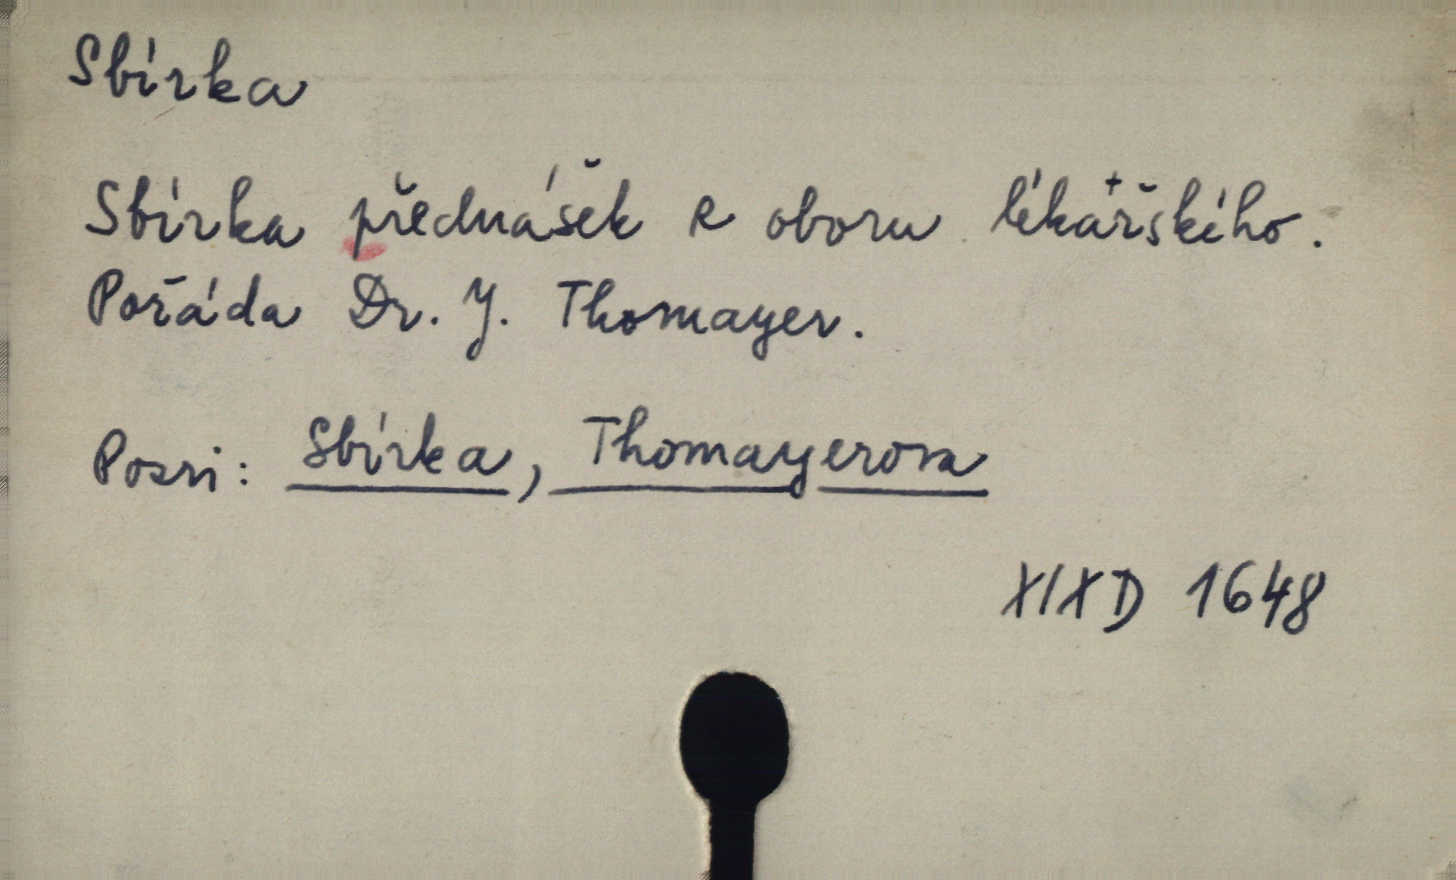 Sbírka
Sbírka přednášek z oboru lékářského.
Pořáda Dr. J. Thomayer.
Pozri: Sbírka, Thomayerova
XIXD 1648